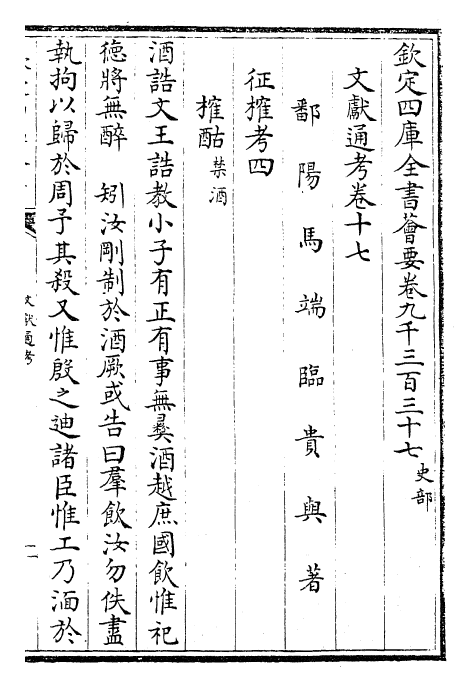 欽定四庫全書薈要卷九千三百三十七 史部
文獻通考卷十七
鄱陽馬端臨貴與著
征榷考四
榷酤 禁酒
酒誥文王誥教小子有正有事無彞酒越庶國飲惟祀
德將無醉 矧汝剛制於酒厥或告曰羣飲汝勿佚盡
執拘以歸於周予其殺又惟殷之迪諸臣惟工乃湎於
文獻通考
一